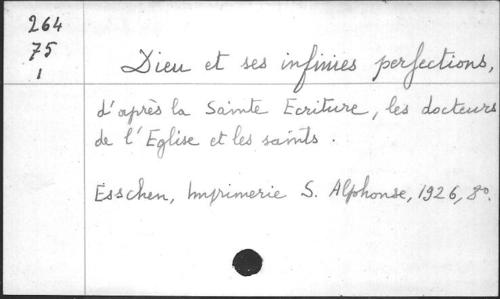 264
75
1
Dieu et ses infinies perfections,
d'après la Sainte Ecriture, les docteurs
de l'Eglise et les saints.
Esschen, Imprimerie S. Alphonse, 1926, 8º.